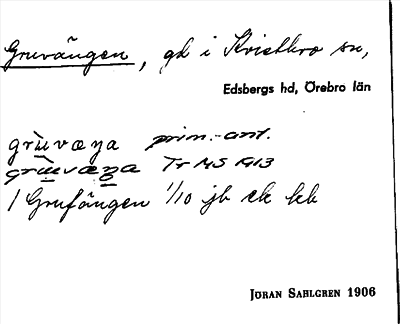 Gruvängen, gd i Kvistbro sn,
Edsbergs hd, Örebro län
grùvæŋa prim.-ant.
grùvæŋa Tr MS 1913
1 Grufängen 1/10 jb ek kb
JÖRAN SAHLGREN 1906